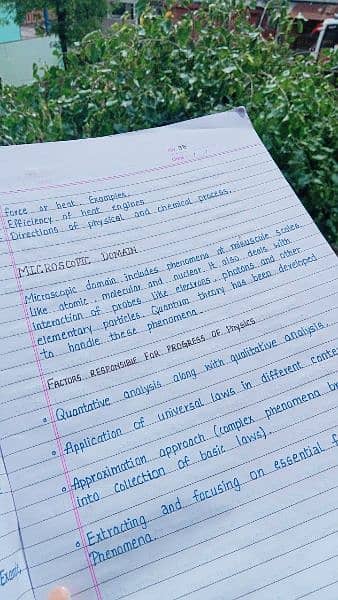 Date / /
force or heat. Examples.
Efficiency of heat engines
Directions of physical and chemical process.
MICROSCOPIC DOMAIN
Microscopic domain includes phenomena at minuscule scales
like atomic, molecular and nuclear. It also deals with
interaction of probes like electrons, photons and other
elementary particles. Quantum theory has been developed
to handle these phenomena.
FACTORS RESPONSIBLE FOR PROGRESS OF Physics
• Quantative analysis along with qualitative analysis.
• Application of universal laws in different conte
• Approximation approach (complex phenomena br
into collection of basic laws).
• Extracting and focusing on essential f
Phenomena.